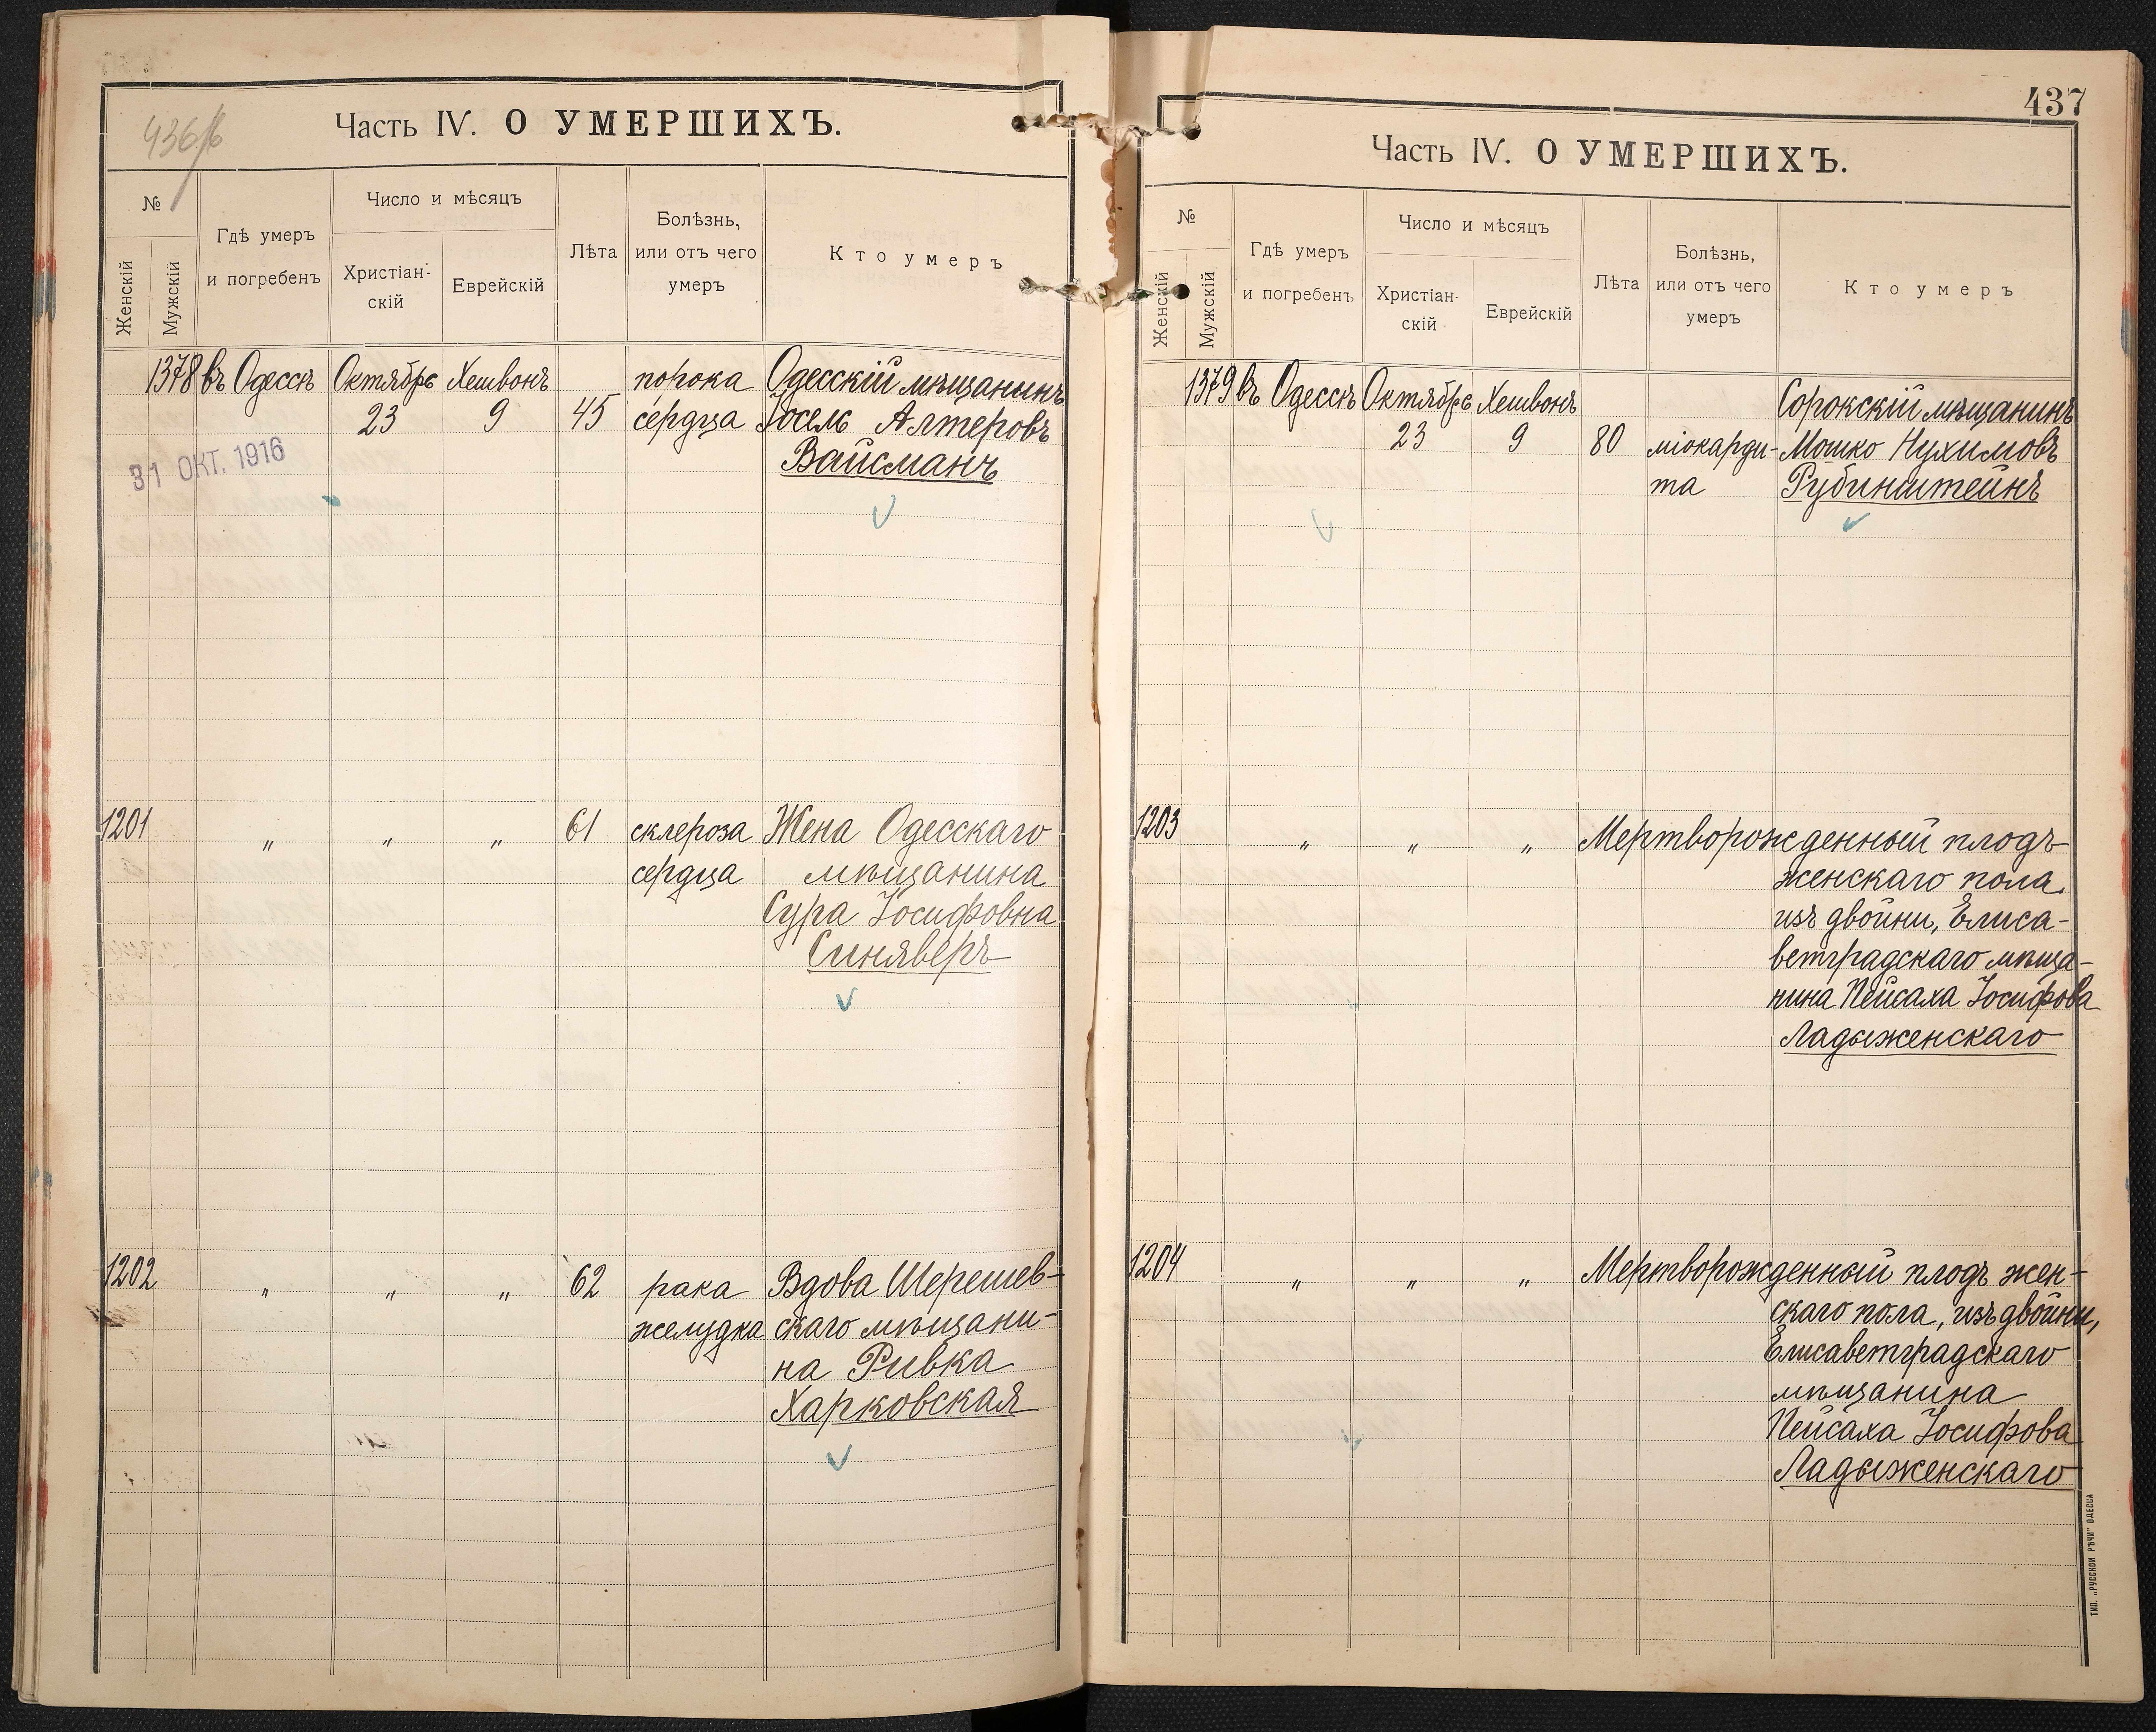 436/б
Часть IV. О УМЕРШИХЪ.
№
Женскій
Мужскій
Гдѣ умеръ
и погребенъ
Число и мѣсяцъ
Христіан-
скій
Еврейскій
Лѣта
Болѣзнь,
или отъ чего
умеръ
Кто умеръ
1378 въ Одессѣ Октябрь Хешвонъ порока Одесскій мѣщанинъ
23 9 45 сердца Іосель Алтеровъ
Вайсманъ
31 ОКТ. 1916
1201 " " " 61 склероза Жена Одесскаго
сердца мѣщанина
Сура Іосифовна
Синяверъ
1202 " " " 62 рака Вдова Шерешев-
желудка скаго мѣщани-
на Ривка
Харковская
437
Часть IV. О УМЕРШИХЪ.
№
Женскій
Мужскій
Гдѣ умеръ
и погребенъ
Число и мѣсяцъ
Христіан-
скій
Еврейскій
Лѣта
Болѣзнь,
или отъ чего
умеръ
Кто умеръ
1379 въ Одессѣ Октябрь Хешвонъ Сорокскій мѣщанинъ
23 9 80 міокарди- Мошко Нухимовъ
та Рубинштейнъ
1203 " " " Мертворожденный плодъ
женскаго пола,
изъ двойни, Елиса-
ветградскаго мѣща-
нина Пейсаха Іосифова
Ладыженскаго
1204 " " " Мертворожденный плодъ жен-
скаго пола, изъ двойни,
Елисаветградскаго
мѣщанина
Пейсаха Іосифова
Ладыженскаго
ТИП. „РУССКОЙ РѢЧИ" ОДЕССА